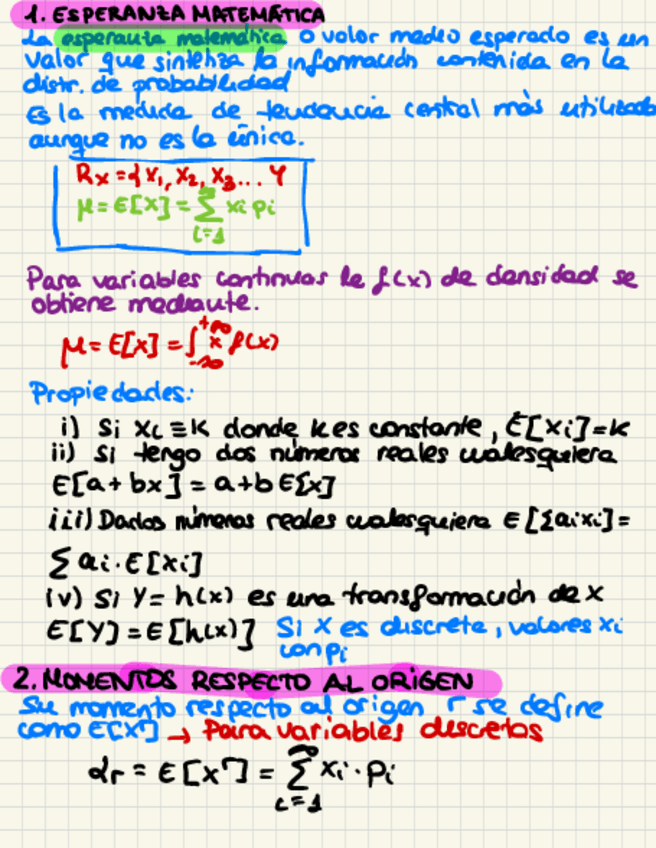 1. ESPERANZA MATEMÁTICA
La esperanza matemática o valor medio esperado es un
valor que sintetiza la información contenida en la
distr. de probabilidad
Es la medida de tendencia central más utilizada
aunque no es la única.
Rx = {x1, x2, x3... }
μ = E[X] = ∑ xi pi
i=1
Para variables continuas la f(x) de densidad se
obtiene mediante.
μ = E[X] = ∫ x f(x)
+∞
-∞
Propiedades:
i) Si xi ≡ k donde k es constante, E[xi] = k
ii) Si tengo dos números reales cualesquiera
E[a + bx] = a + b E[x]
iii) Dados números reales cualesquiera E[∑aixi] =
∑ ai · E[xi]
iv) Si Y = h(x) es una transformación de x
E[Y] = E[h(x)] Si X es discreta, valores xi
con pi
2. MOMENTOS RESPECTO AL ORIGEN
Su momento respecto al origen r se define
como E[X^r] → Para variables discretas
αr = E[X^r] = ∑ xi · pi
∞
i=1